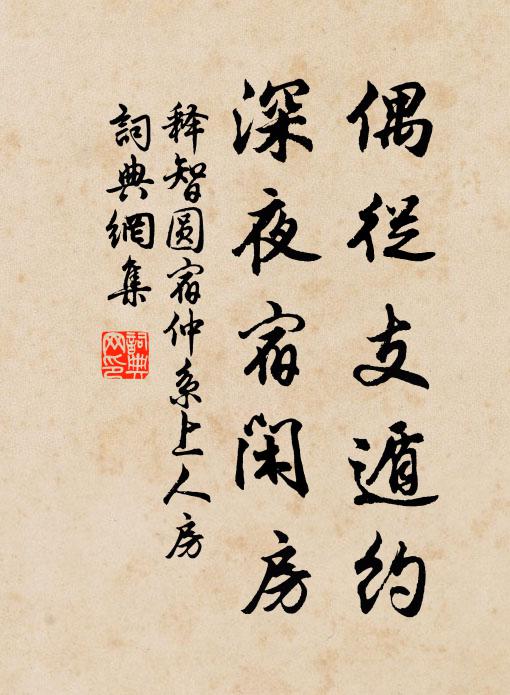 偶從支遁約
深夜宿閑房
释智圆宿仲系上人房
詞典網集
詞典
网印